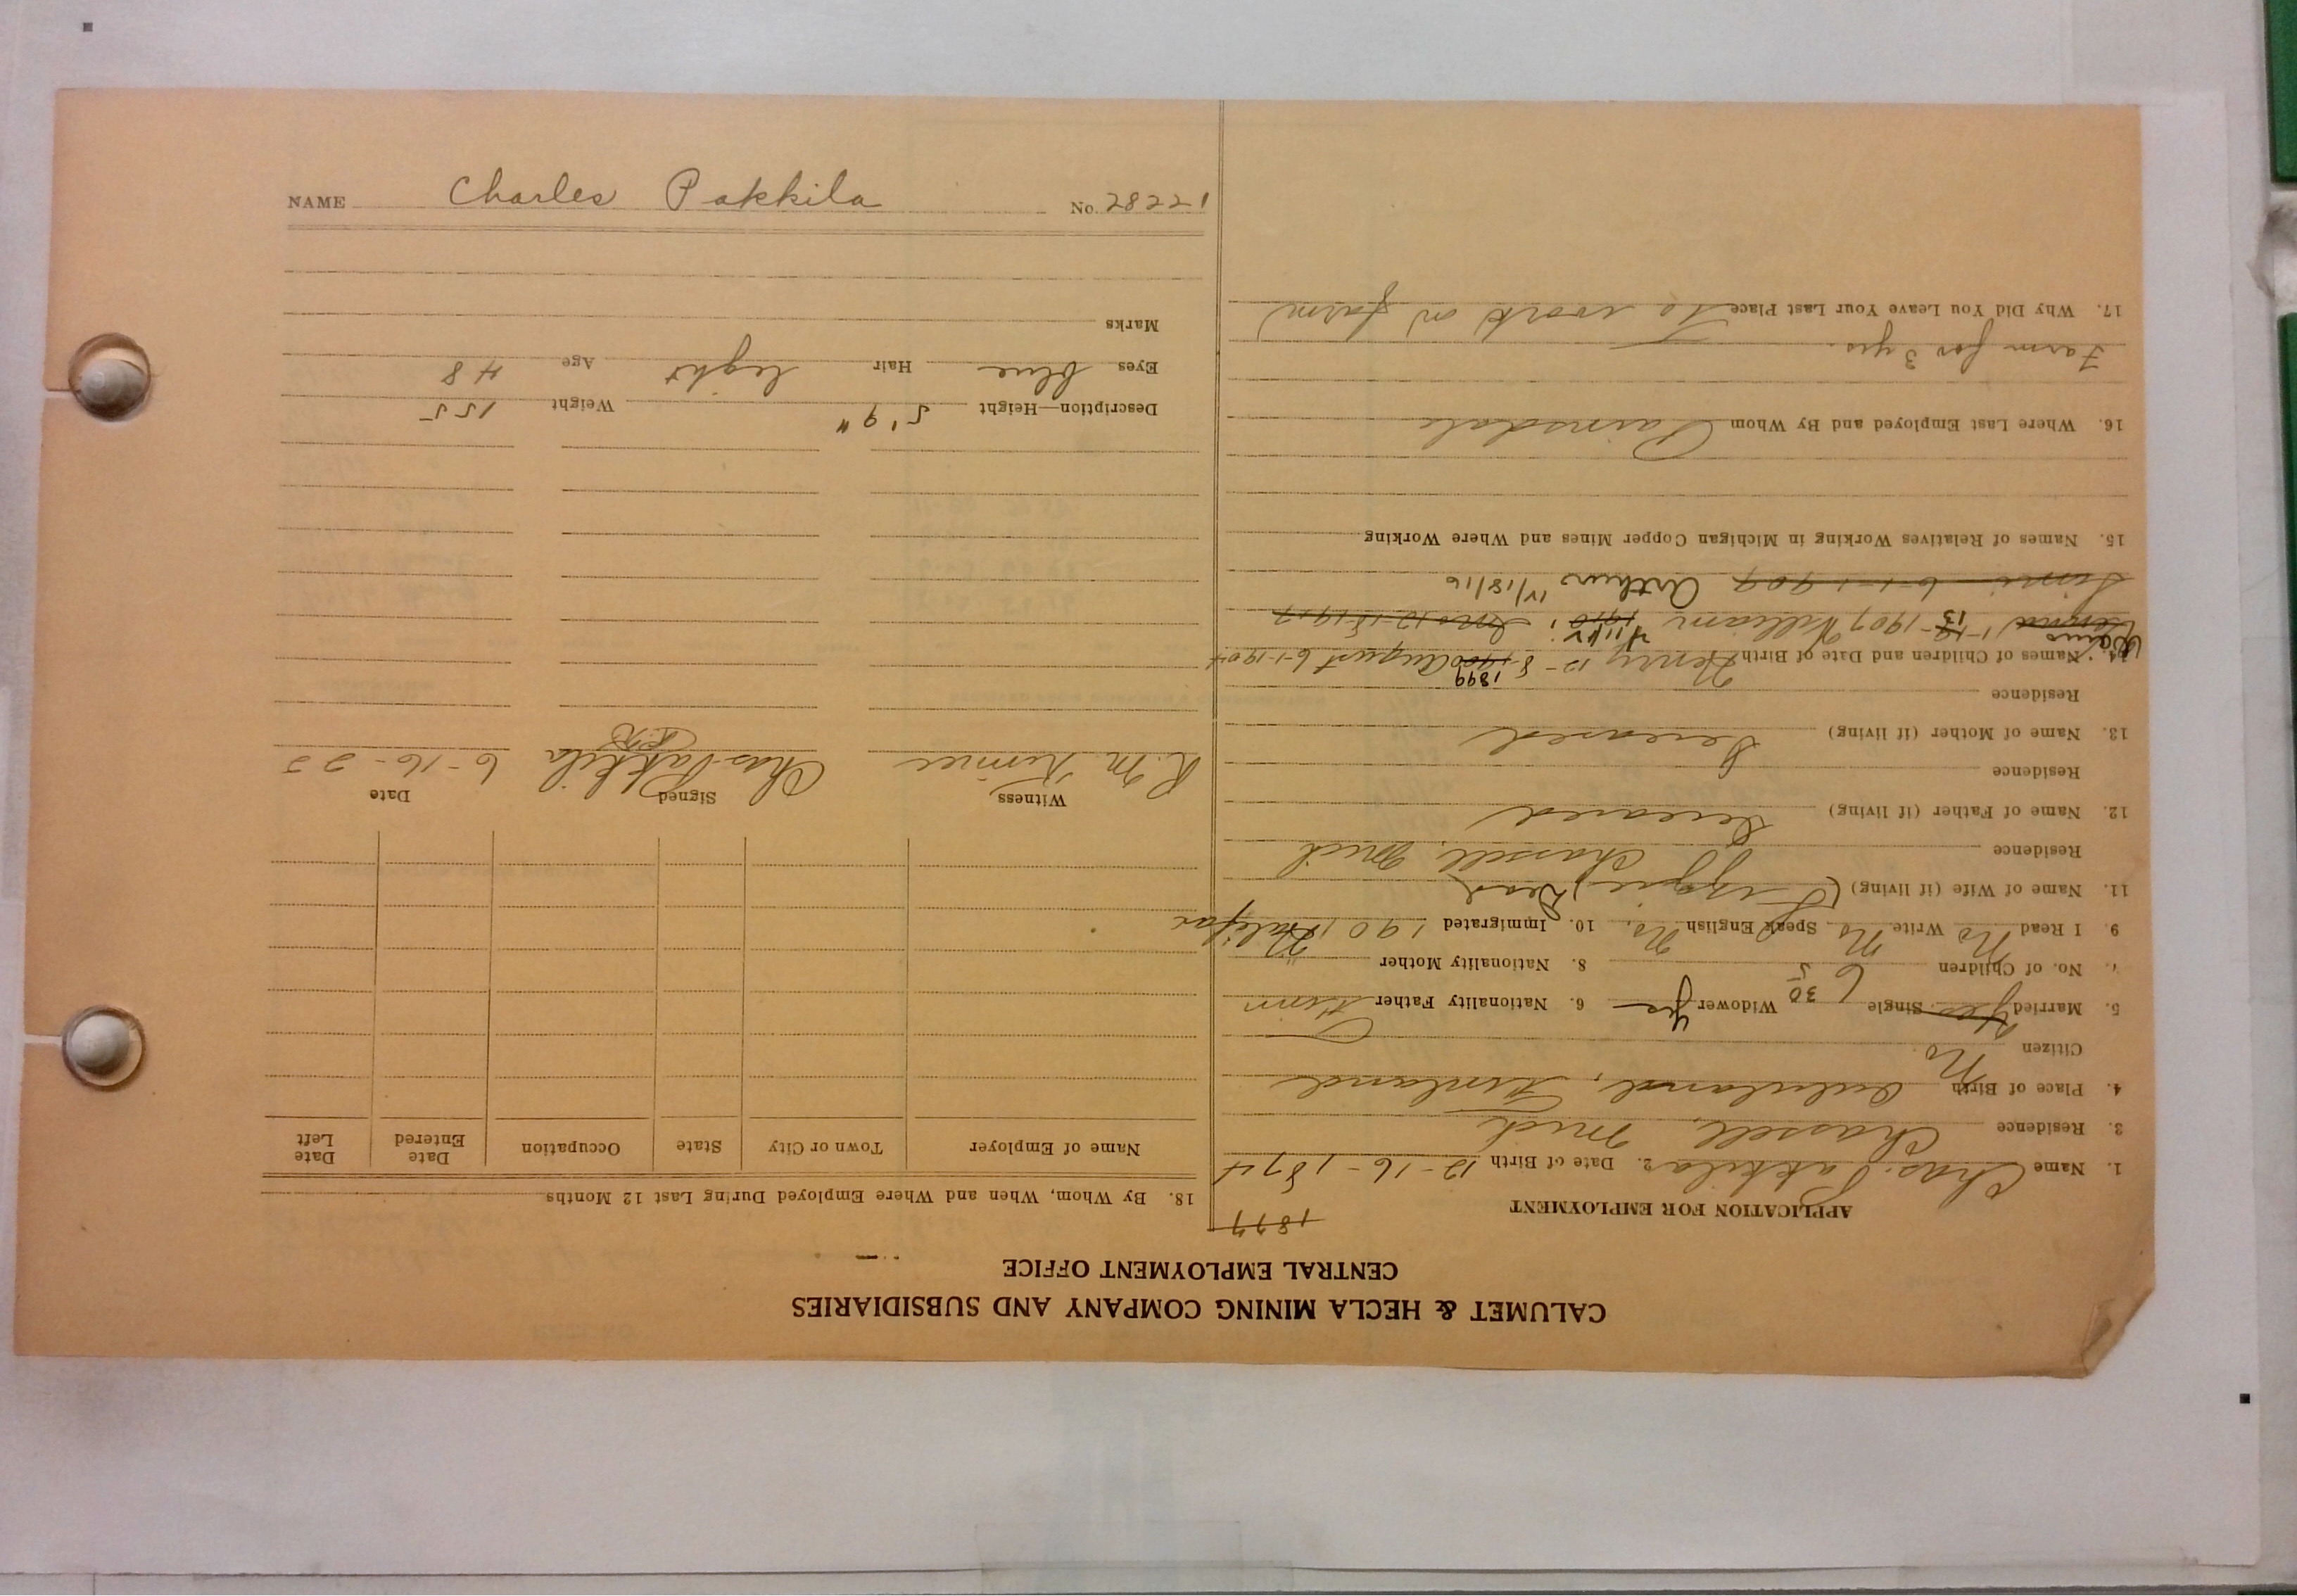 CALUMET & HECLA MINING COMPANY AND SUBSIDIARIES
CENTRAL EMPLOYMENT OFFICE
APPLICATION FOR EMPLOYMENT
1877
1. Name Chas. Pakkila 2. Date of Birth 12-16-1874
3. Residence Chassell, Mich
4. Place of Birth Oululand, Finland
Citizen No
5. Married Yes Single Widower yes 6. Nationality Father Finn
7. No. of Children 6 5 8. Nationality Mother "
9. I Read No Write No Speak English No. 10. Immigrated 1901 Halifax
11. Name of Wife (if living) (Lizzie) Dead
Residence Chassell, Mich
12. Name of Father (if living) Deceased
Residence
13. Name of Mother (if living) Deceased
Residence
14. Names of Children and Date of Birth Henry 12-8-1900 1899 August 6-1-1904
Waino 1-13-1907 William 1910 4/11/12 12-18-1907
6-1-1909 Arthur 1/18/16
15. Names of Relatives Working in Michigan Copper Mines and Where Working
16. Where Last Employed and By Whom Painsdale
Farm for 3 yrs.
17. Why Did You Leave Your Last Place To work on farm
18. By Whom, When and Where Employed During Last 12 Months
Name of Employer Town or City State Occupation Date Entered Date Left
Witness Signed Date
R. M. Chas Pakkila 6-16-22
Description—Height 5'9" Weight 155
Eyes blue Hair light Age 48
Marks
NAME Charles Pakkila No. 28221